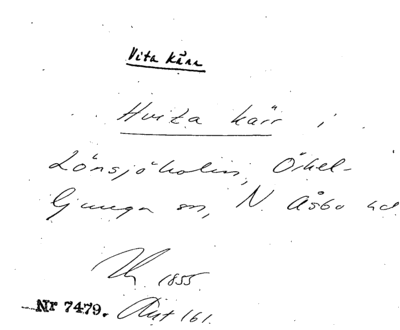 Vita kärr
Hvita kärr i
Lönsjöholm, Örkel-
ljunga sn, N. Åsbo hd.
1855.
Nr 7479. Akt 161.